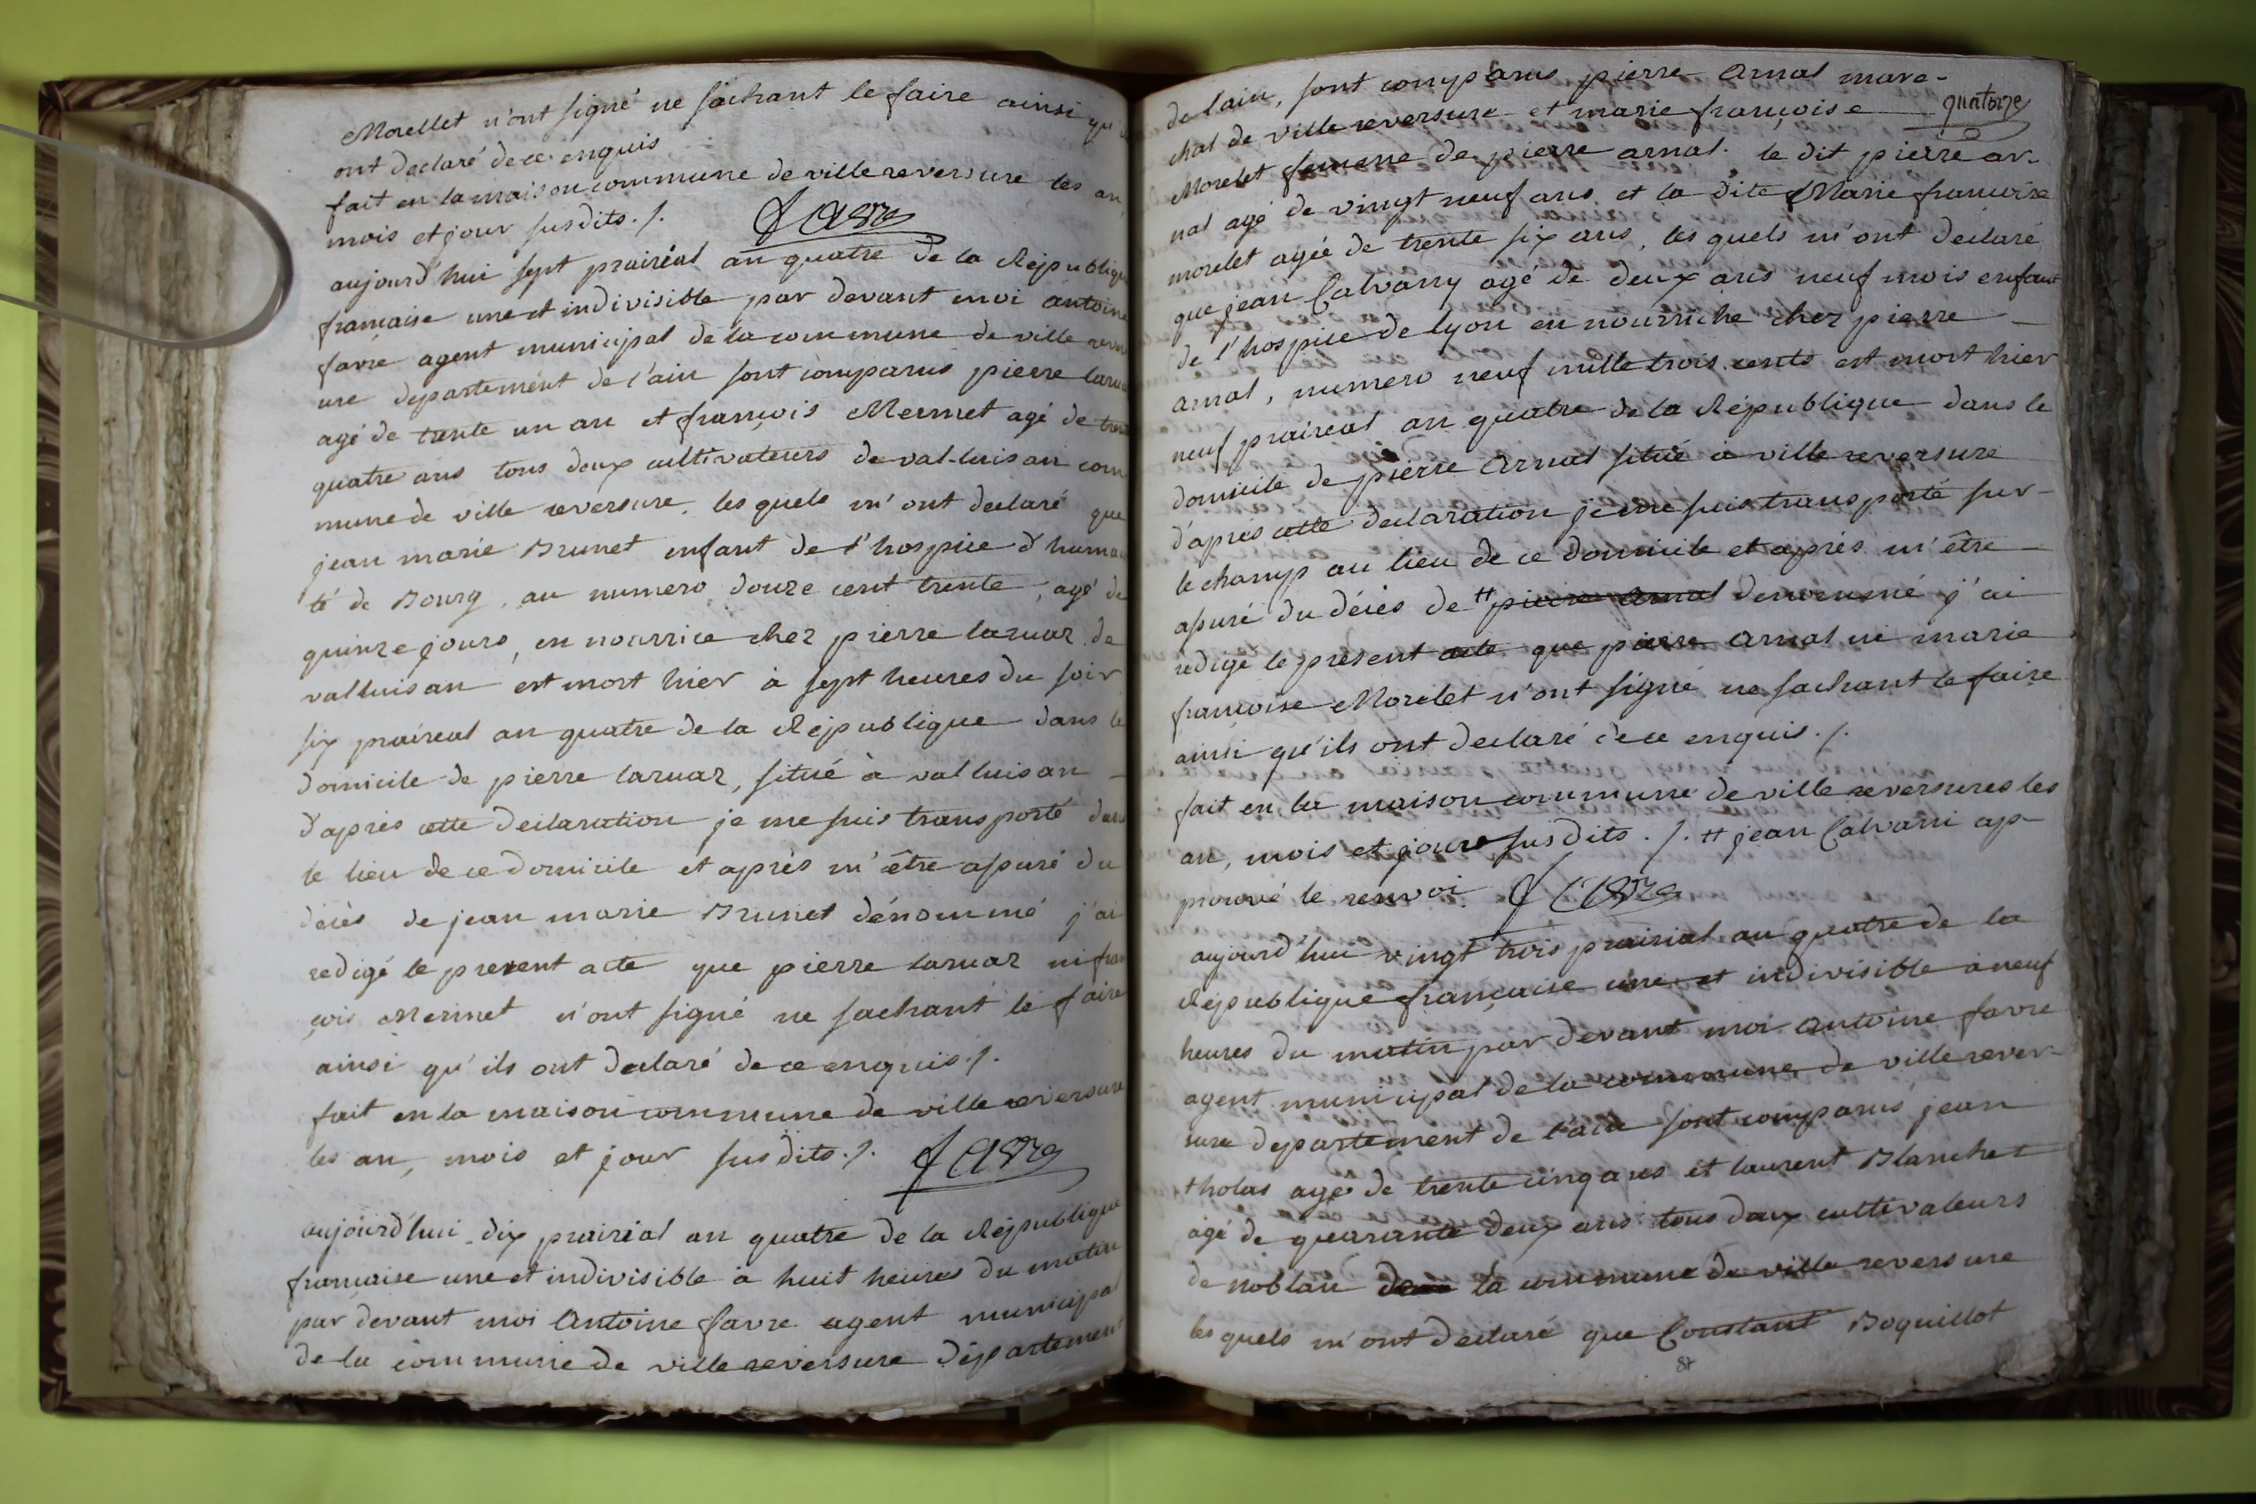 Morellet n'ont signé ne sachant le faire ainsi qu'
ont declaré de ce enquis
fait en la maison commune de ville reversure les an,
mois et jour susdits ./. favre
aujourd'hui sept prairéal an quatre de la République
francaise une et indivisible par devant moi antoine
favre agent municipal de la commune de ville rever
ure departement de l'ain sont comparus pierre laruaz
agé de trente un an et françois Mermet agé de trente
quatre ans tous deux cultivateurs de val-luisan com
mune de ville reversure, les quels m'ont declaré que
jean marie Brunet enfant de l'hospice d'humani
té de Bourg, au numero douze cent trente, agé de
quinze jours, en nourrice chez pierre laruaz de
valluisan est mort hier à sept heures du soir
six prairéal an quatre de la République dans le
domicile de pierre laruaz, situé à valluisan
d'après cette declaration je me suis transporté dans
le lieu de ce domicile et après m'être assuré du
décès de jean marie Brunet dénommé j'ai
redigé le present acte que pierre laruaz ni fran
çois Mermet n'ont signé ne sachant le faire
ainsi qu'ils ont declaré de ce enquis ./.
fait en la maison commune de ville reversure
les an, mois et jour susdits ./. favre
aujourd'hui dix prairial an quatre de la République
francaise une et indivisible à huit heures du matin
par devant moi Antoine favre agent municipal
de la commune de ville reversure département
de lain, sont comparus pierre Arnal mare-
chal de ville reversure et marie françoise quatorze
Morelet femme de pierre arnal. le dit pierre ar-
nal agé de vingt neuf ans et la dite Marie francoise
morelet agée de trente six ans, les quels m'ont declaré
que jean Calvany agé de deux ans neuf mois enfant
de l'hospice de lyon en nourriche chez pierre
arnal, numero neuf mille trois cents est mort hier
neuf prairéal an quatre de la République dans le
domicile de pierre Arnal situé à ville reversure
d'après cette declaration je me suis transporté sur-
le champ au lieu de ce domicile et après m'être
assuré du décès de # pierre arnal denommé j'ai
redigé le présent acte que pierre arnal ni marie
francoise Morelet n'ont signé ne sachant le faire
ainsi qu'ils ont declaré de ce enquis ./.
fait en la maison commune de ville reversures les
an, mois et jours susdits ./. # jean Calvani ap-
prouvé le renvoi. favre
aujourd'hui vingt trois prairial an quatre de la
République française une et indivisible à neuf
heures du matin par devant moi Antoine favre
agent municipal de la commune de ville rever-
sure departement de l'ain sont comparus jean
tholas agé de trente cinq ans et laurent Blanchet
agé de quarante deux ans tous deux cultivateurs
de noblan la commune de ville reversure
les quels m'ont declaré que Constant Boquillot